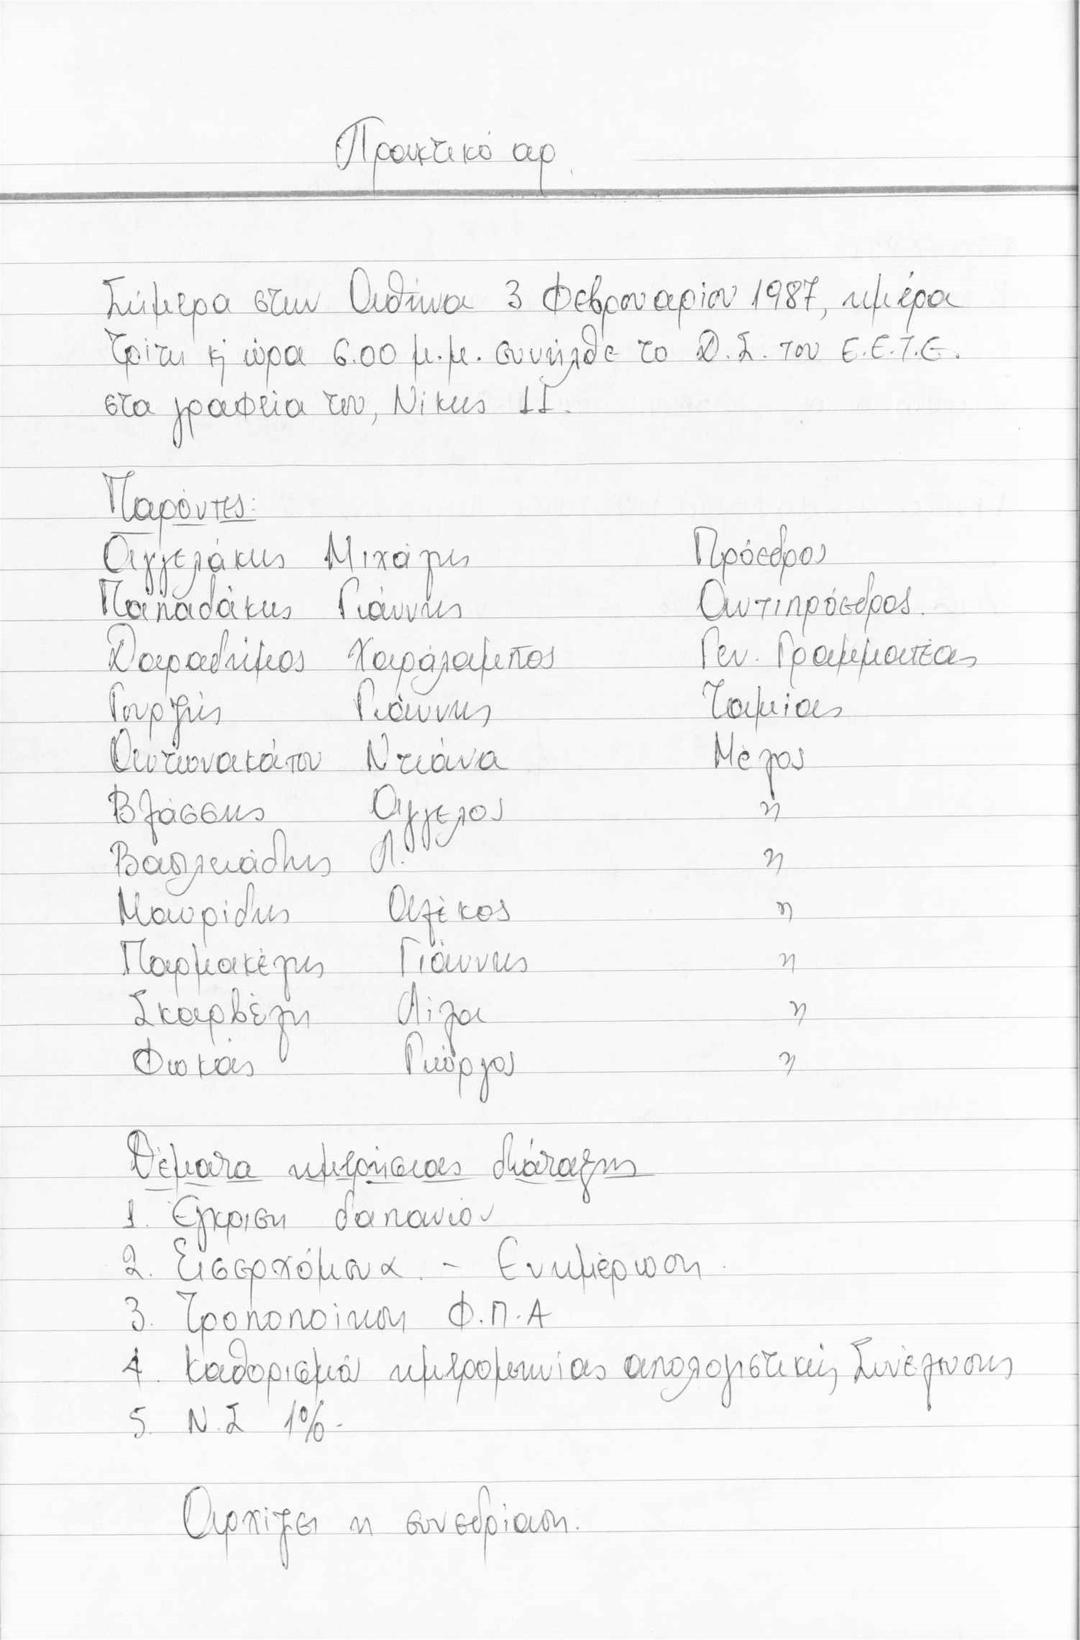 Πρακτικό αρ.
Σήμερα στην Αθήνα 3 Φεβρουαρίου 1987, ημέρα
Τρίτη κ' ώρα 6.00 μ.μ. συνήλθε το Δ.Σ. του Ε.Ε.Τ.Ε.
στα γραφεία του, Νίκης 11.
Παρόντες:
Αγγελάκης Μιχάλης Πρόεδρος
Παπαδάκης Γιάννης Αντιπρόεδρος.
Δαραδήμος Χαράλαμπος Γεν. Γραμματέας
Γουρζής Γιάννης Ταμίας
Αντωνακάτου Ντιάνα Μέλος
Βλάσσης Άγγελος "
Βασιλειάδης Λ. "
Μαυρίδης Αλέκος "
Παρμακέλης Γιάννης "
Σκαρβέλη Λίλα "
Φωκάς Γιώργος "
Θέματα ημερήσιας διάταξης
1. Έγκριση δαπανών
2. Εισερχόμενα. - Ενημέρωση.
3. Τροποποίηση Φ.Π.Α
4. Καθορισμό ημερομηνίας απολογιστικής Συνέλευσης
5. Ν.Σ 1% -
Αρχίζει η συνεδρίαση.